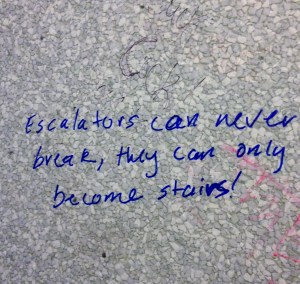 Escalators can never
break, they can only
become stairs!